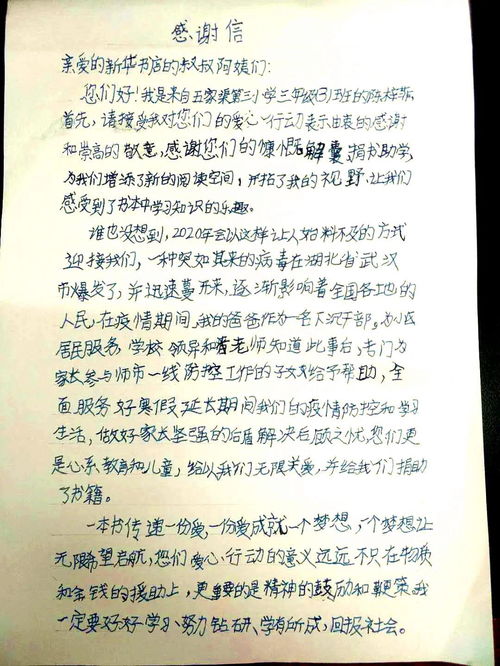 感谢信
亲爱的新华书店的叔叔阿姨们：
您们好！我是来自五家渠第三小学三年级(3)班的陈梓
首先，请接受我对您们的爱心行动表示由衷的感谢
和崇高的敬意，感谢您们的慷慨解囊，捐书助学，
为我们增添了新的阅读空间，开拓了我的视野，让我们
感受到了书本中学习知识的乐趣。
谁也没想到，2020年会以这样让人始料不及的方式
迎接我们，一种突如其来的病毒在湖北省武汉
市爆发了，并迅速蔓开来，逐渐影响着全国各地的
人民，在疫情期间，我的爸爸作为一名下沉干部，为小区
居民服务，学校领导和老师知道此事后，专门为
家长参与师市一线防控工作的子女给予帮助，全
面服务好寒假延长期间我们的疫情防控和学习
生活，做好家长坚强的后盾解决后顾之忧，您们更
是心系教育和儿童，给以我们无限关爱，并给我们捐助
了书籍。
一本书传递一份爱，一份爱成就一个梦想，一个梦想让
无限希望启航，您们爱心行动的意义远远不只在物质
和金钱的援助上，更重要的是精神的鼓励和鞭策。我
一定要好好学习、努力钻研、学有所成，回报社会。